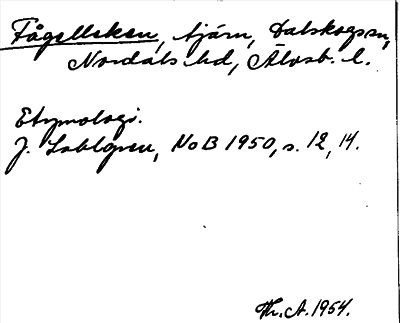 Fågelleken, tjärn, Dalskogs sn,
Nordals hd, Älvsb. l.
Etymologi.
J. Sahlgren, NoB 1950, s. 12, 14.
Th. A. 1954.